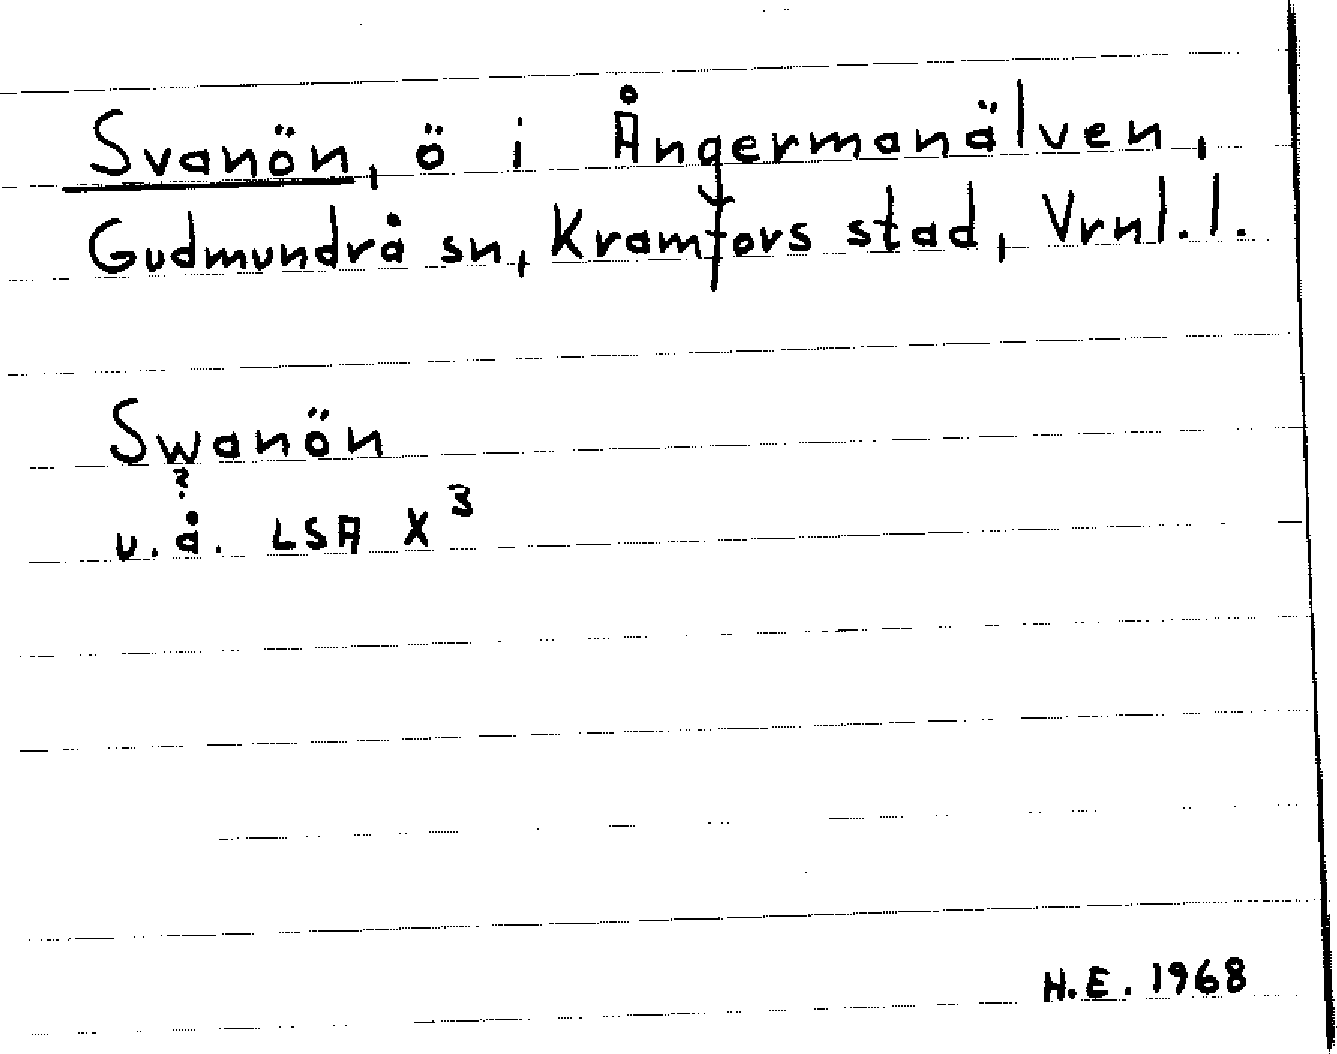 Svanön, ö i Ångermanälven,
Gudmundrå sn, Kramfors stad, Vrnl.l.
Swanön
?
u.å. LSA X³
H.E. 1968